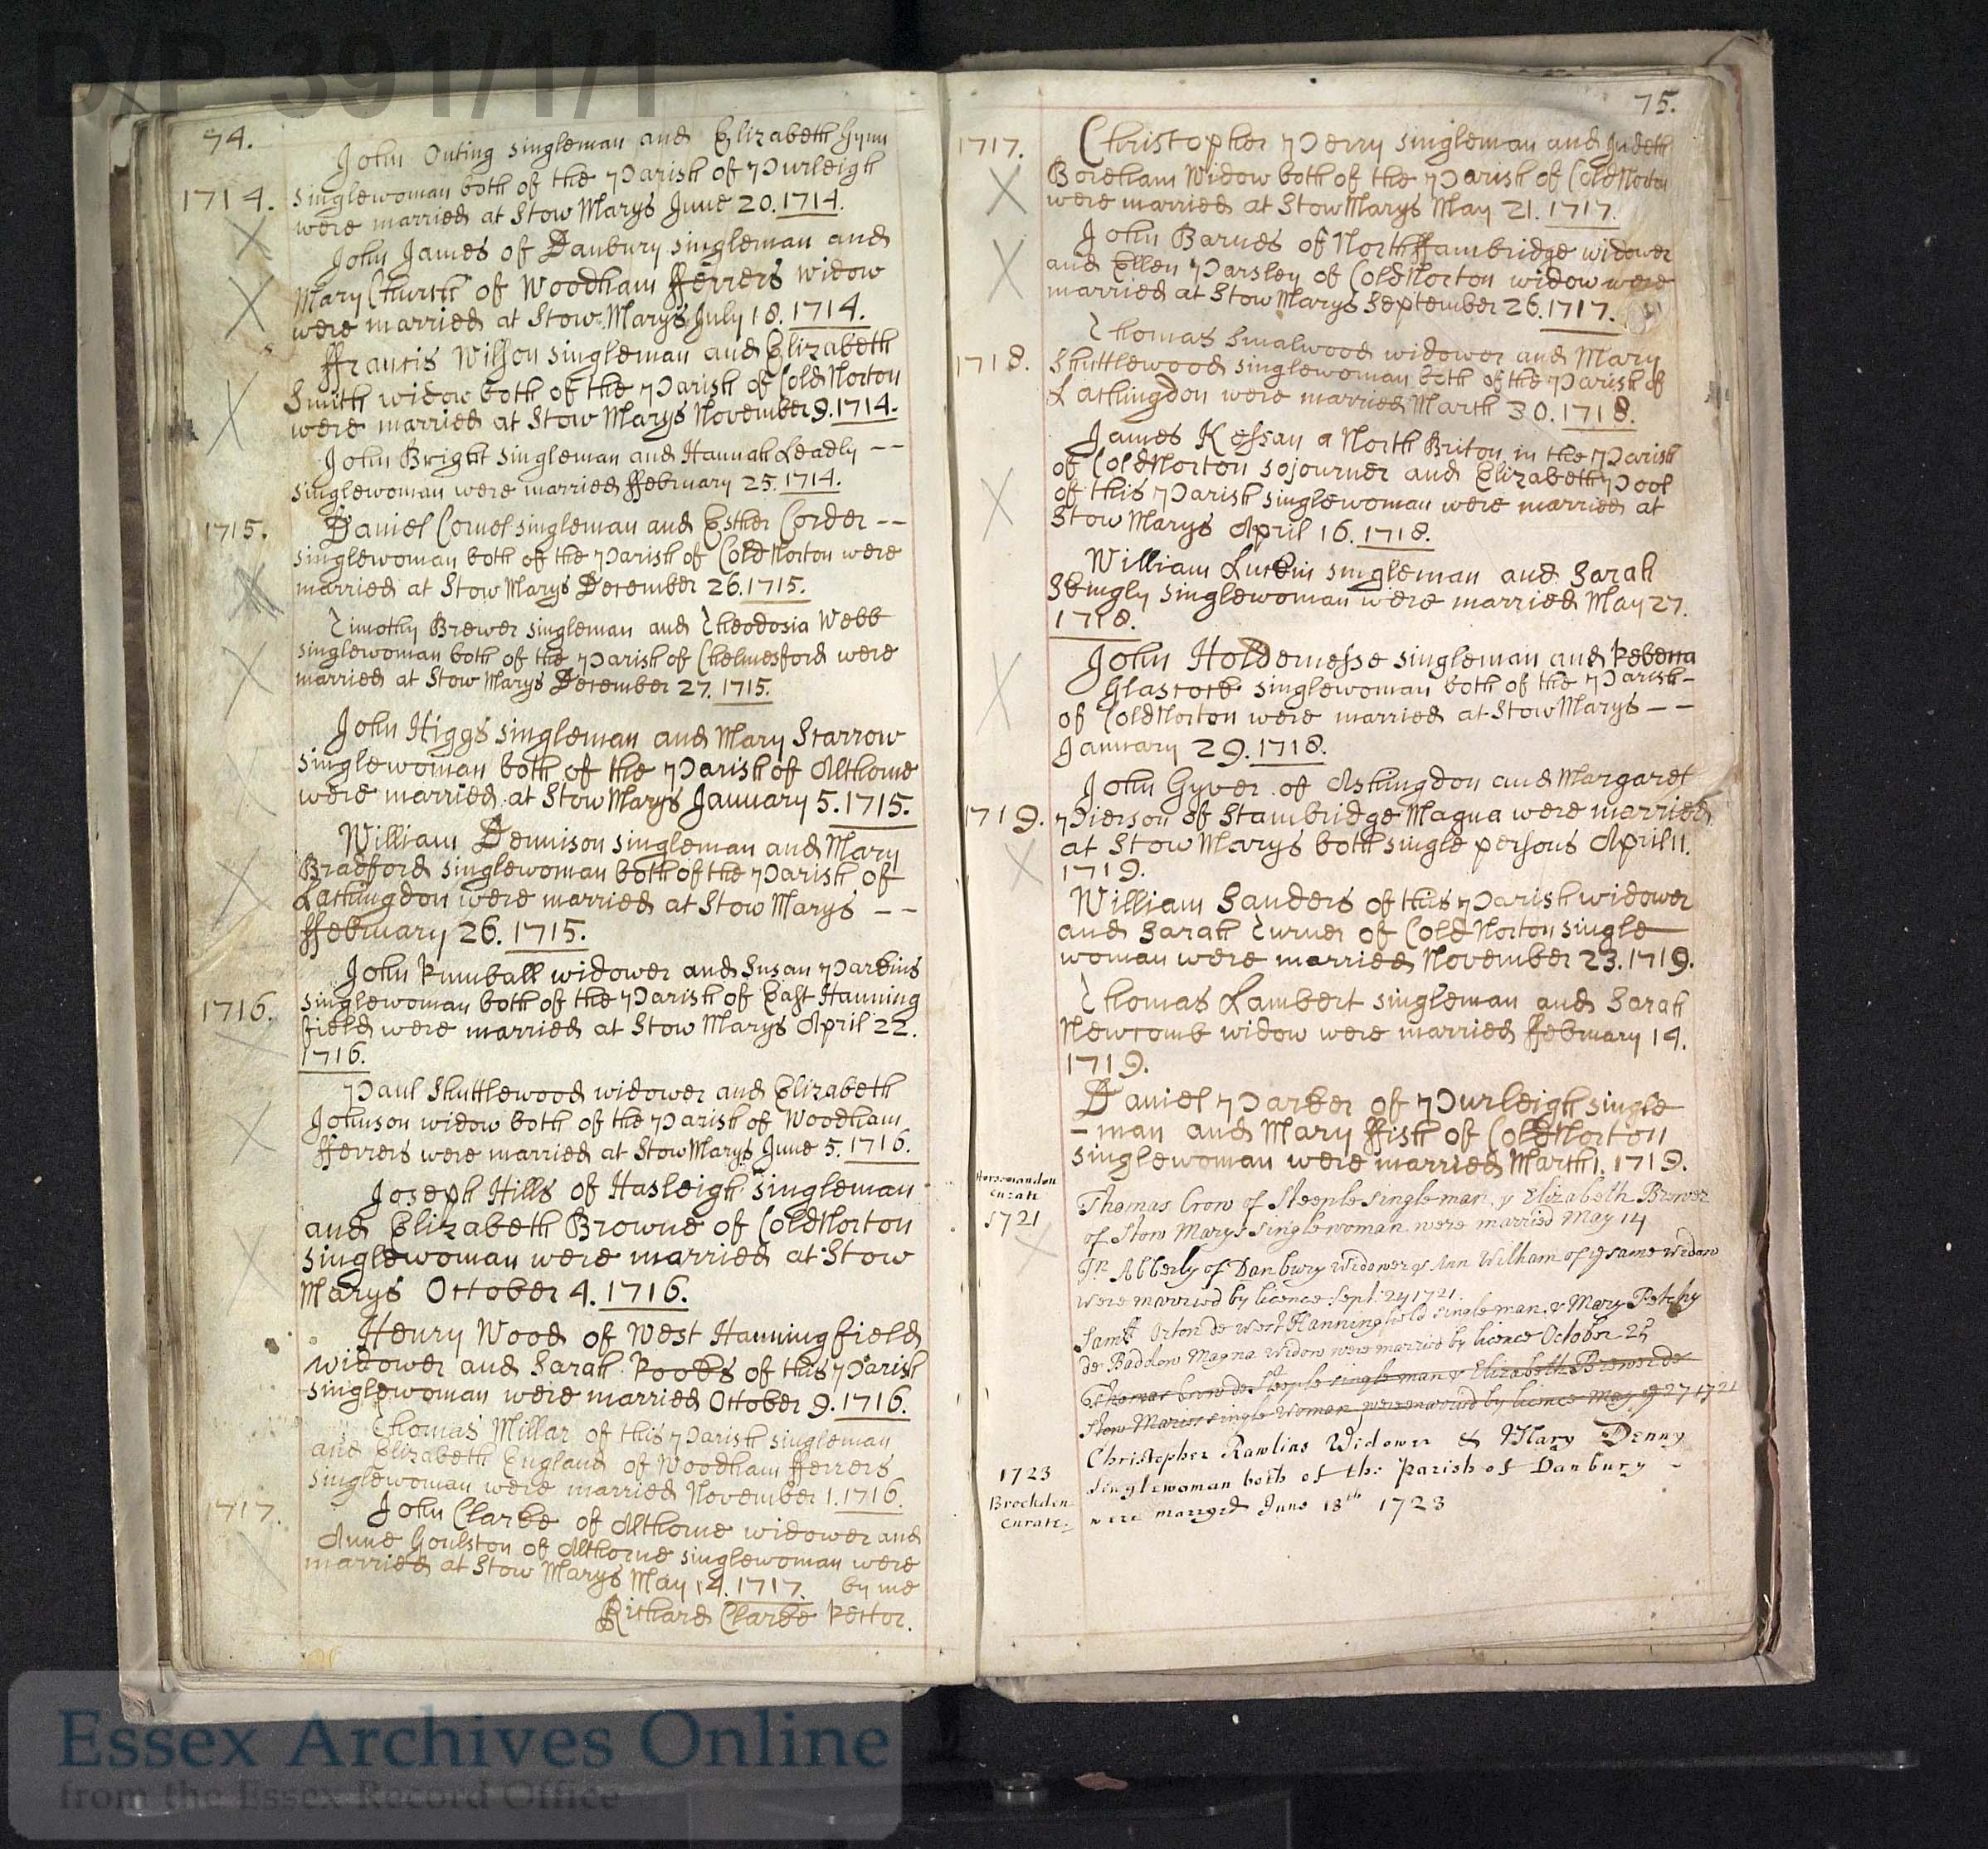 D/P 391/1/1
74.
John Outing singleman and Elizabeth Gynn
1714. singlewoman both of the Parish of Purleigh
were married at Stow Marys June 20. 1714.
John James of Danbury singleman and
Mary Church of Woodham fferrers widow
were married at Stow Marys July 18. 1714.
ffrancis Wilson singleman and Elizabeth
Smith widow both of the Parish of Cold Norton
were married at Stow Marys November 9. 1714.
John Bright singleman and Hannah Leadly --
singlewoman were married ffebruary 25. 1714.
1715. Daniel Cornel singleman and Esther Corder --
singlewoman both of the Parish of Cold Norton were
married at Stow Marys December 26. 1715.
Timothy Brewer singleman and Theodosia Webb
singlewoman both of the Parish of Chelmesford were
married at Stow Marys December 27. 1715.
John Higgs singleman and Mary Starrow
singlewoman both of the Parish of Althorne
were married at Stow Marys January 5. 1715.
William Dennison singleman and Mary
Bradford singlewoman both of the Parish of
Lachingdon were married at Stow Marys --
ffebruary 26. 1715.
John Rumball widower and Susan Parkins
1716. singlewoman both of the Parish of East Hanning
field were married at Stow Marys April 22.
1716.
Paul Shuttlewood widower and Elizabeth
Johnson widow both of the Parish of Woodham
fferrers were married at Stow Marys June 5. 1716.
Joseph Hills of Hasleigh singleman
and Elizabeth Browne of Cold Norton
singlewoman were married at Stow
Marys October 4. 1716.
Henry Wood of West Hanningfield
widower and Sarah Rooks of this Parish
singlewoman were married October 9. 1716.
Thomas Millar of this Parish singleman
and Elizabeth England of Woodham fferrers
singlewoman were married November 1. 1716.
1717. John Clarke of Althorne widower and
Anne Goulston of Althorne singlewoman were
married at Stow Marys May 14. 1717. by me
Richard Clarke Rector.
75.
1717. Christopher Perry singleman and Judeth
Boreham Widow both of the Parish of Cold Norton
were married at Stow Marys May 21. 1717.
John Barnes of North ffambridge widower
and Ellen Parsley of Cold Norton widow were
married at Stow Marys September 26. 1717.
Thomas Smalwood widower and Mary
1718. Shuttlewood singlewoman both of the Parish of
Lachingdon were married March 30. 1718.
James Kessan a North Briton in the Parish
of Cold Norton sojourner and Elizabeth Pool
of this Parish singlewoman were married at
Stow Marys April 16. 1718.
William Luckin singleman and Sarah
Skingly singlewoman were married May 27.
1718.
John Holdernesse singleman and Rebecca
Glascock singlewoman both of the Parish -
of Cold Norton were married at Stow Marys --
January 29. 1718.
John Gyver of Ashingdon and Margaret
1719. Pierson of Stambridge Magna were married
at Stow Marys both single persons April 11.
1719.
William Sanders of this Parish widower
and Sarah Turner of Cold Norton single
woman were married November 23. 1719.
Thomas Lambert singleman and Sarah
Newcomb widow were married ffebruary 14.
1719.
Daniel Parker of Purleigh single
-man and Mary ffish of Cold Norton
singlewoman were married March 1. 1719.
Horsmandon
Curate
1721
Thomas Crow of Steeple single man & Elizabeth Brewer
of Stow Marys single woman were married May 14
Abberly of Danbury Widower & Ann Wilham of ye same Widow
were married by licence Sept: 24 1721.
Samll Orton de West Hanningfield single man & Mary Petchy
de Baddow Magna Widow were married by licence October 25
Thomas Crow de Steeple single man & Elizabeth Brewer de
Stow Maries single Woman were married by licence May 27 1721
1723 Christopher Rawlins Widower & Mary Denny
Brockden Singlewoman both of the parish of Danbury -
Curate. were marryed June 18th 1723
Essex Archives Online
from the Essex Record Office